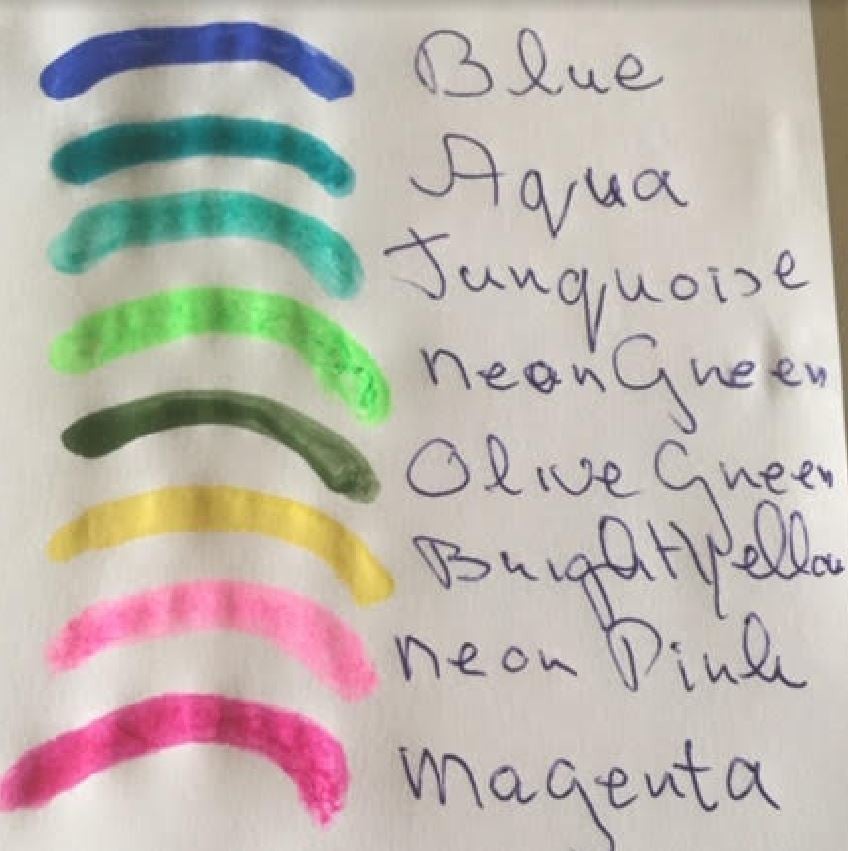 Blue
Aqua
Turquoise
neon Green
Olive Green
Bright Yellow
neon Pink
Magenta